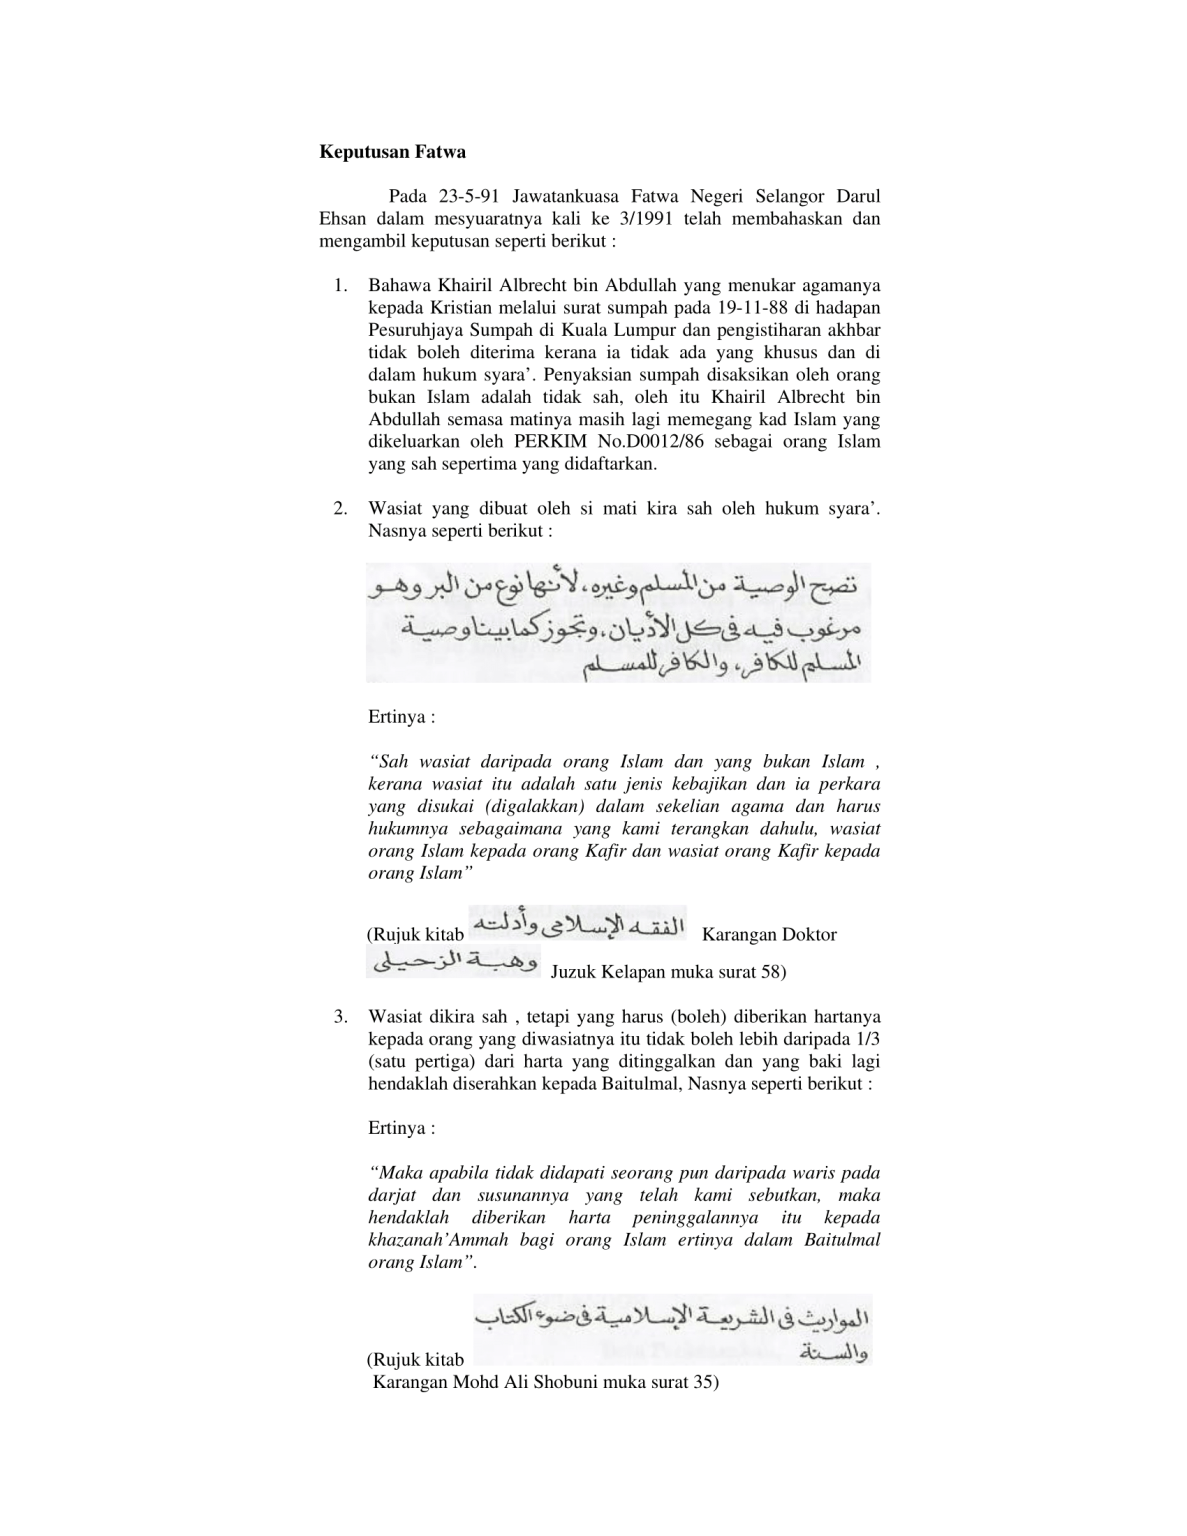 Keputusan Fatwa
Pada 23-5-91 Jawatankuasa Fatwa Negeri Selangor Darul
Ehsan dalam mesyuaratnya kali ke 3/1991 telah membahaskan dan
mengambil keputusan seperti berikut :
1. Bahawa Khairil Albrecht bin Abdullah yang menukar agamanya
kepada Kristian melalui surat sumpah pada 19-11-88 di hadapan
Pesuruhjaya Sumpah di Kuala Lumpur dan pengistiharan akhbar
tidak boleh diterima kerana ia tidak ada yang khusus dan di
dalam hukum syara’. Penyaksian sumpah disaksikan oleh orang
bukan Islam adalah tidak sah, oleh itu Khairil Albrecht bin
Abdullah semasa matinya masih lagi memegang kad Islam yang
dikeluarkan oleh PERKIM No.D0012/86 sebagai orang Islam
yang sah sepertima yang didaftarkan.
2. Wasiat yang dibuat oleh si mati kira sah oleh hukum syara’.
Nasnya seperti berikut :
تصح الوصية من المسلم وغيره، لأنها نوع من البر وهو
مرغوب فيه فى كل الأديان، وتجوز كما بينا وصية
المسلم للكافر، والكافر للمسلم
Ertinya :
“Sah wasiat daripada orang Islam dan yang bukan Islam ,
kerana wasiat itu adalah satu jenis kebajikan dan ia perkara
yang disukai (digalakkan) dalam sekelian agama dan harus
hukumnya sebagaimana yang kami terangkan dahulu, wasiat
orang Islam kepada orang Kafir dan wasiat orang Kafir kepada
orang Islam”
(Rujuk kitab الفقه الإسلامى وأدلته Karangan Doktor
وهبة الزحيلى Juzuk Kelapan muka surat 58)
3. Wasiat dikira sah , tetapi yang harus (boleh) diberikan hartanya
kepada orang yang diwasiatnya itu tidak boleh lebih daripada 1/3
(satu pertiga) dari harta yang ditinggalkan dan yang baki lagi
hendaklah diserahkan kepada Baitulmal, Nasnya seperti berikut :
Ertinya :
“Maka apabila tidak didapati seorang pun daripada waris pada
darjat dan susunannya yang telah kami sebutkan, maka
hendaklah diberikan harta peninggalannya itu kepada
khazanah’Ammah bagi orang Islam ertinya dalam Baitulmal
orang Islam”.
المواريث فى الشريعة الإسلامية فى ضوء الكتاب
والسنة
(Rujuk kitab
Karangan Mohd Ali Shobuni muka surat 35)